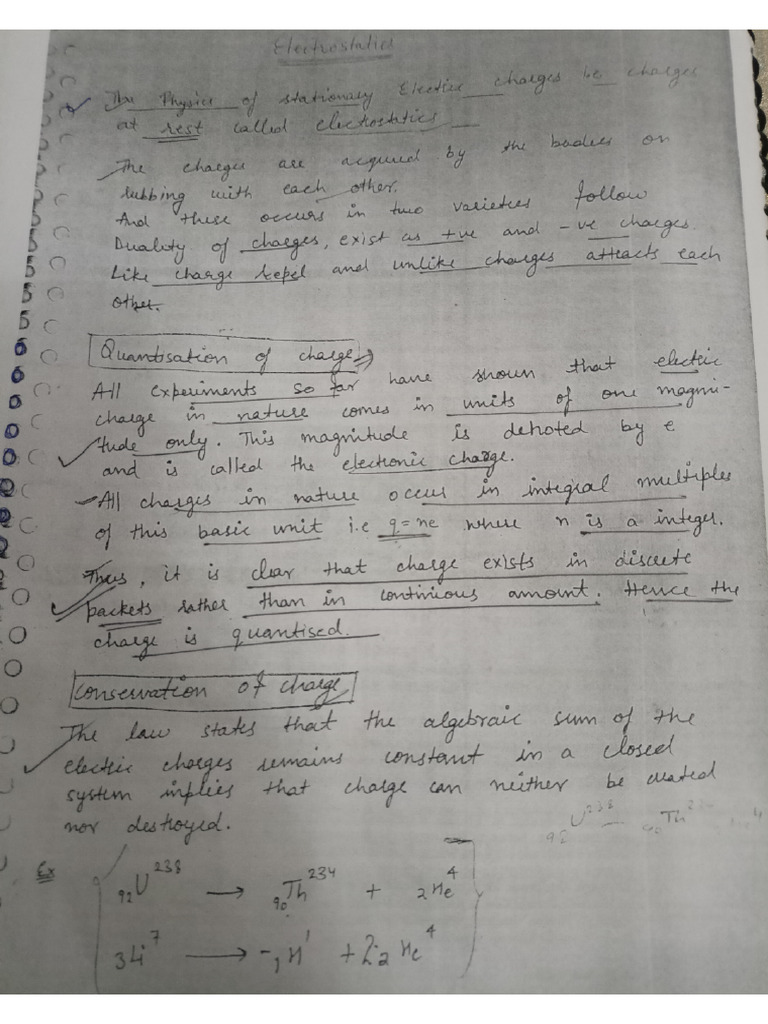 Electrostatics
The Physics of stationary Electric charges i.e charges
at rest called electrostatics
The charges are acquired by the bodies on
rubbing with each other.
And these occurs in two varieties follow
Duality of charges, exist as +ve and -ve charges.
Like charge repel and unlike charges attracts each
other.
Quantisation of charge
All experiments so far have shown that electric
charge in nature comes in units of one magni-
tude only. This magnitude is denoted by e
and is called the electronic charge.
All charges in nature occur in integral multiples
of this basic unit i.e q=ne where n is a integer.
Thus, it is clear that charge exists in discrete
packets rather than in continious amount. Hence the
charge is quantised.
Conservation of charge
The law states that the algebraic sum of the
electric charges remains constant in a closed
system implies that charge can neither be created
nor destroyed.
92U238 90Th
Ex
92U238 → 90Th234 + 2He4
3Li7 → -1H1 + 2 2He4